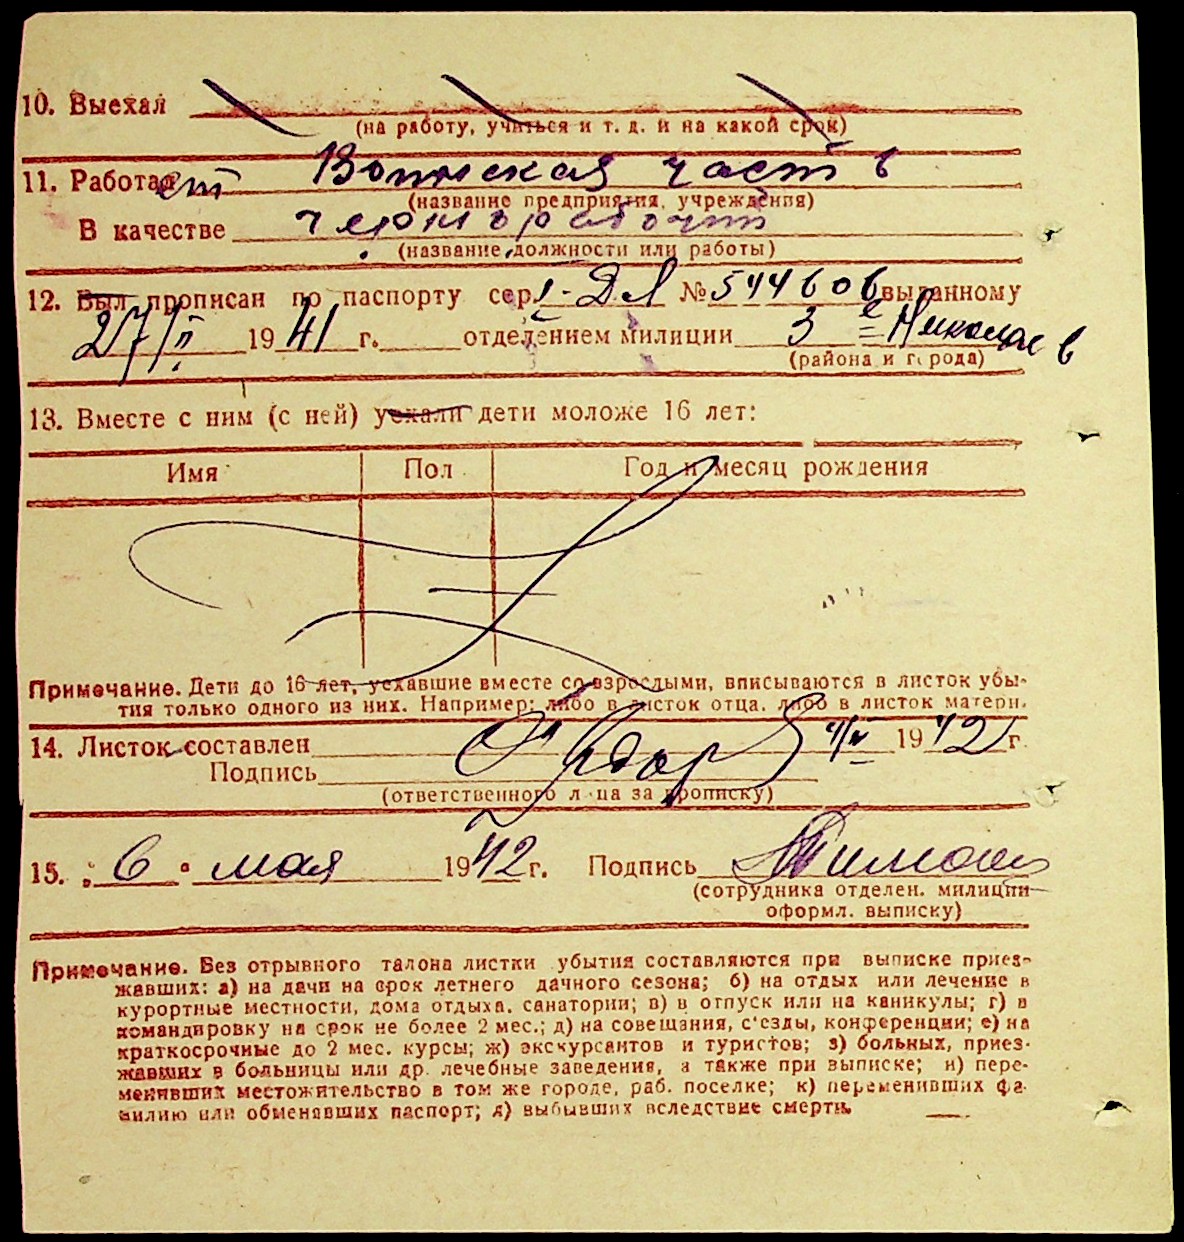 10. Выехал
(на работу, учиться и т. д. и на какой срок)
11. Работает Воинская часть
(название предприятия, учреждения)
В качестве чернорабочий
(название должности или работы)
12. Был прописан по паспорту сер. I-ДЛ № 544606 выданному
27/II 1941 г. отделением милиции 3 е Николаев
(района и города)
13. Вместе с ним (с ней) уехали дети моложе 16 лет:
Имя Пол Год и месяц рождения
Примечание. Дети до 16 лет, уехавшие вместе со взрослыми, вписываются в листок убы-
тия только одного из них. Например: либо в листок отца, либо в листок матери.
14. Листок составлен 1942 г.
Подпись
(ответственного лица за прописку)
15. "6" мая 1942 г. Подпись
(сотрудника отделен. милиции
оформл. выписку)
Примечание. Без отрывного талона листки убытия составляются при выписке приез-
жавших: а) на дачи на срок летнего дачного сезона; б) на отдых или лечение в
курортные местности, дома отдыха, санатории; в) в отпуск или на каникулы; г) в
командировку на срок не более 2 мес.; д) на совещания, с'езды, конференции; е) на
краткосрочные до 2 мес. курсы; ж) экскурсантов и туристов; з) больных, приез-
жавших в больницы или др. лечебные заведения, а также при выписке; и) пере-
менивших местожительство в том же городе, раб. поселке; к) переменивших фа-
милию или обменявших паспорт; л) выбывших вследствие смерти.